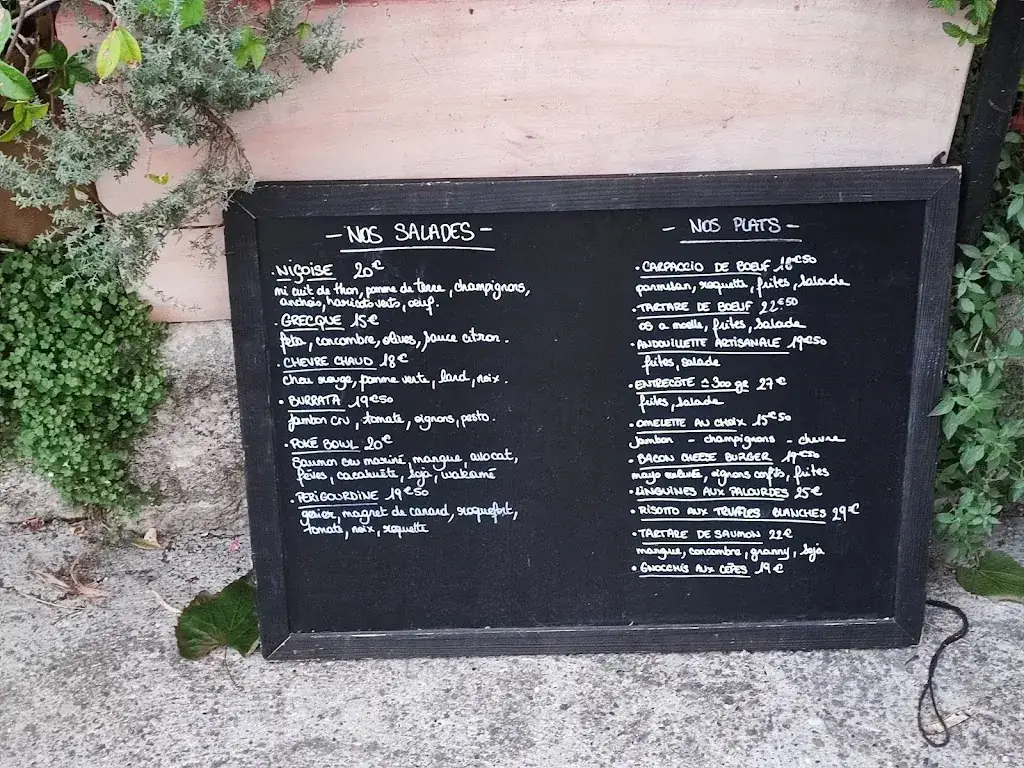 - NOS SALADES -
. NIÇOISE 20€
mi cuit de thon, pomme de terre, champignons,
anchois, haricots verts, œuf.
. GRECQUE 15€
feta, concombre, olives, sauce citron.
. CHEVRE CHAUD 18€
chou rouge, pomme verte, lard, noix.
. BURRATA 19€50
jambon cru, tomate, oignons, pesto.
. POKÉ BOWL 20€
Saumon cru mariné, mangue, avocat,
fèves, cacahuète, soja, wakamé
. PERIGOURDINE 19€50
gésier, magret de canard, roquefort,
tomate, noix, roquette
- NOS PLATS -
. CARPACCIO DE BOEUF 18€50
parmesan, roquette, frites, salade
. TARTARE DE BOEUF 22€50
os a moelle, frites, salade
. ANDOUILLETTE ARTISANALE 19€50
frites, salade
. ENTRECÔTE ± 300 gr 27€
frites, salade
. OMELETTE AU CHOIX 15€50
Jambon - champignons - chevre
. BACON CHEESE BURGER 19€50
mayo, oignons confits, frites
. LINGUINES AUX PALOURDES 25€
. RISOTTO AUX TRUFFES BLANCHES 29€
. TARTARE DE SAUMON 22€
mangue, concombre, granny, soja
. GNOCCHIS AUX CÈPES 19€